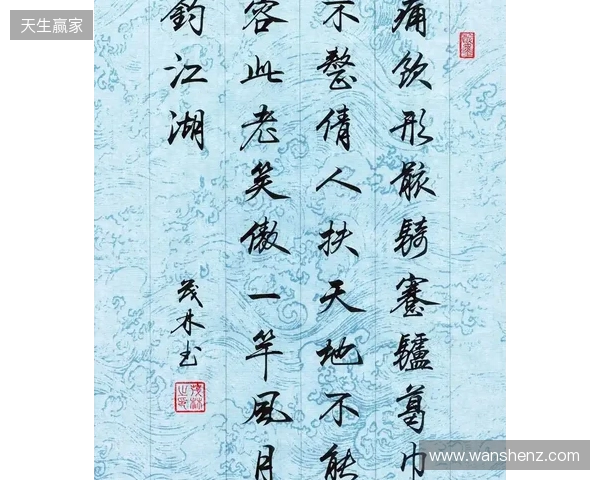 天生赢家
痛飲形骸騎蹇驢葛巾
不整倩人扶天地不能
容此老笑傲一竿風月
釣江湖
茂林书
www.wanshenz.com